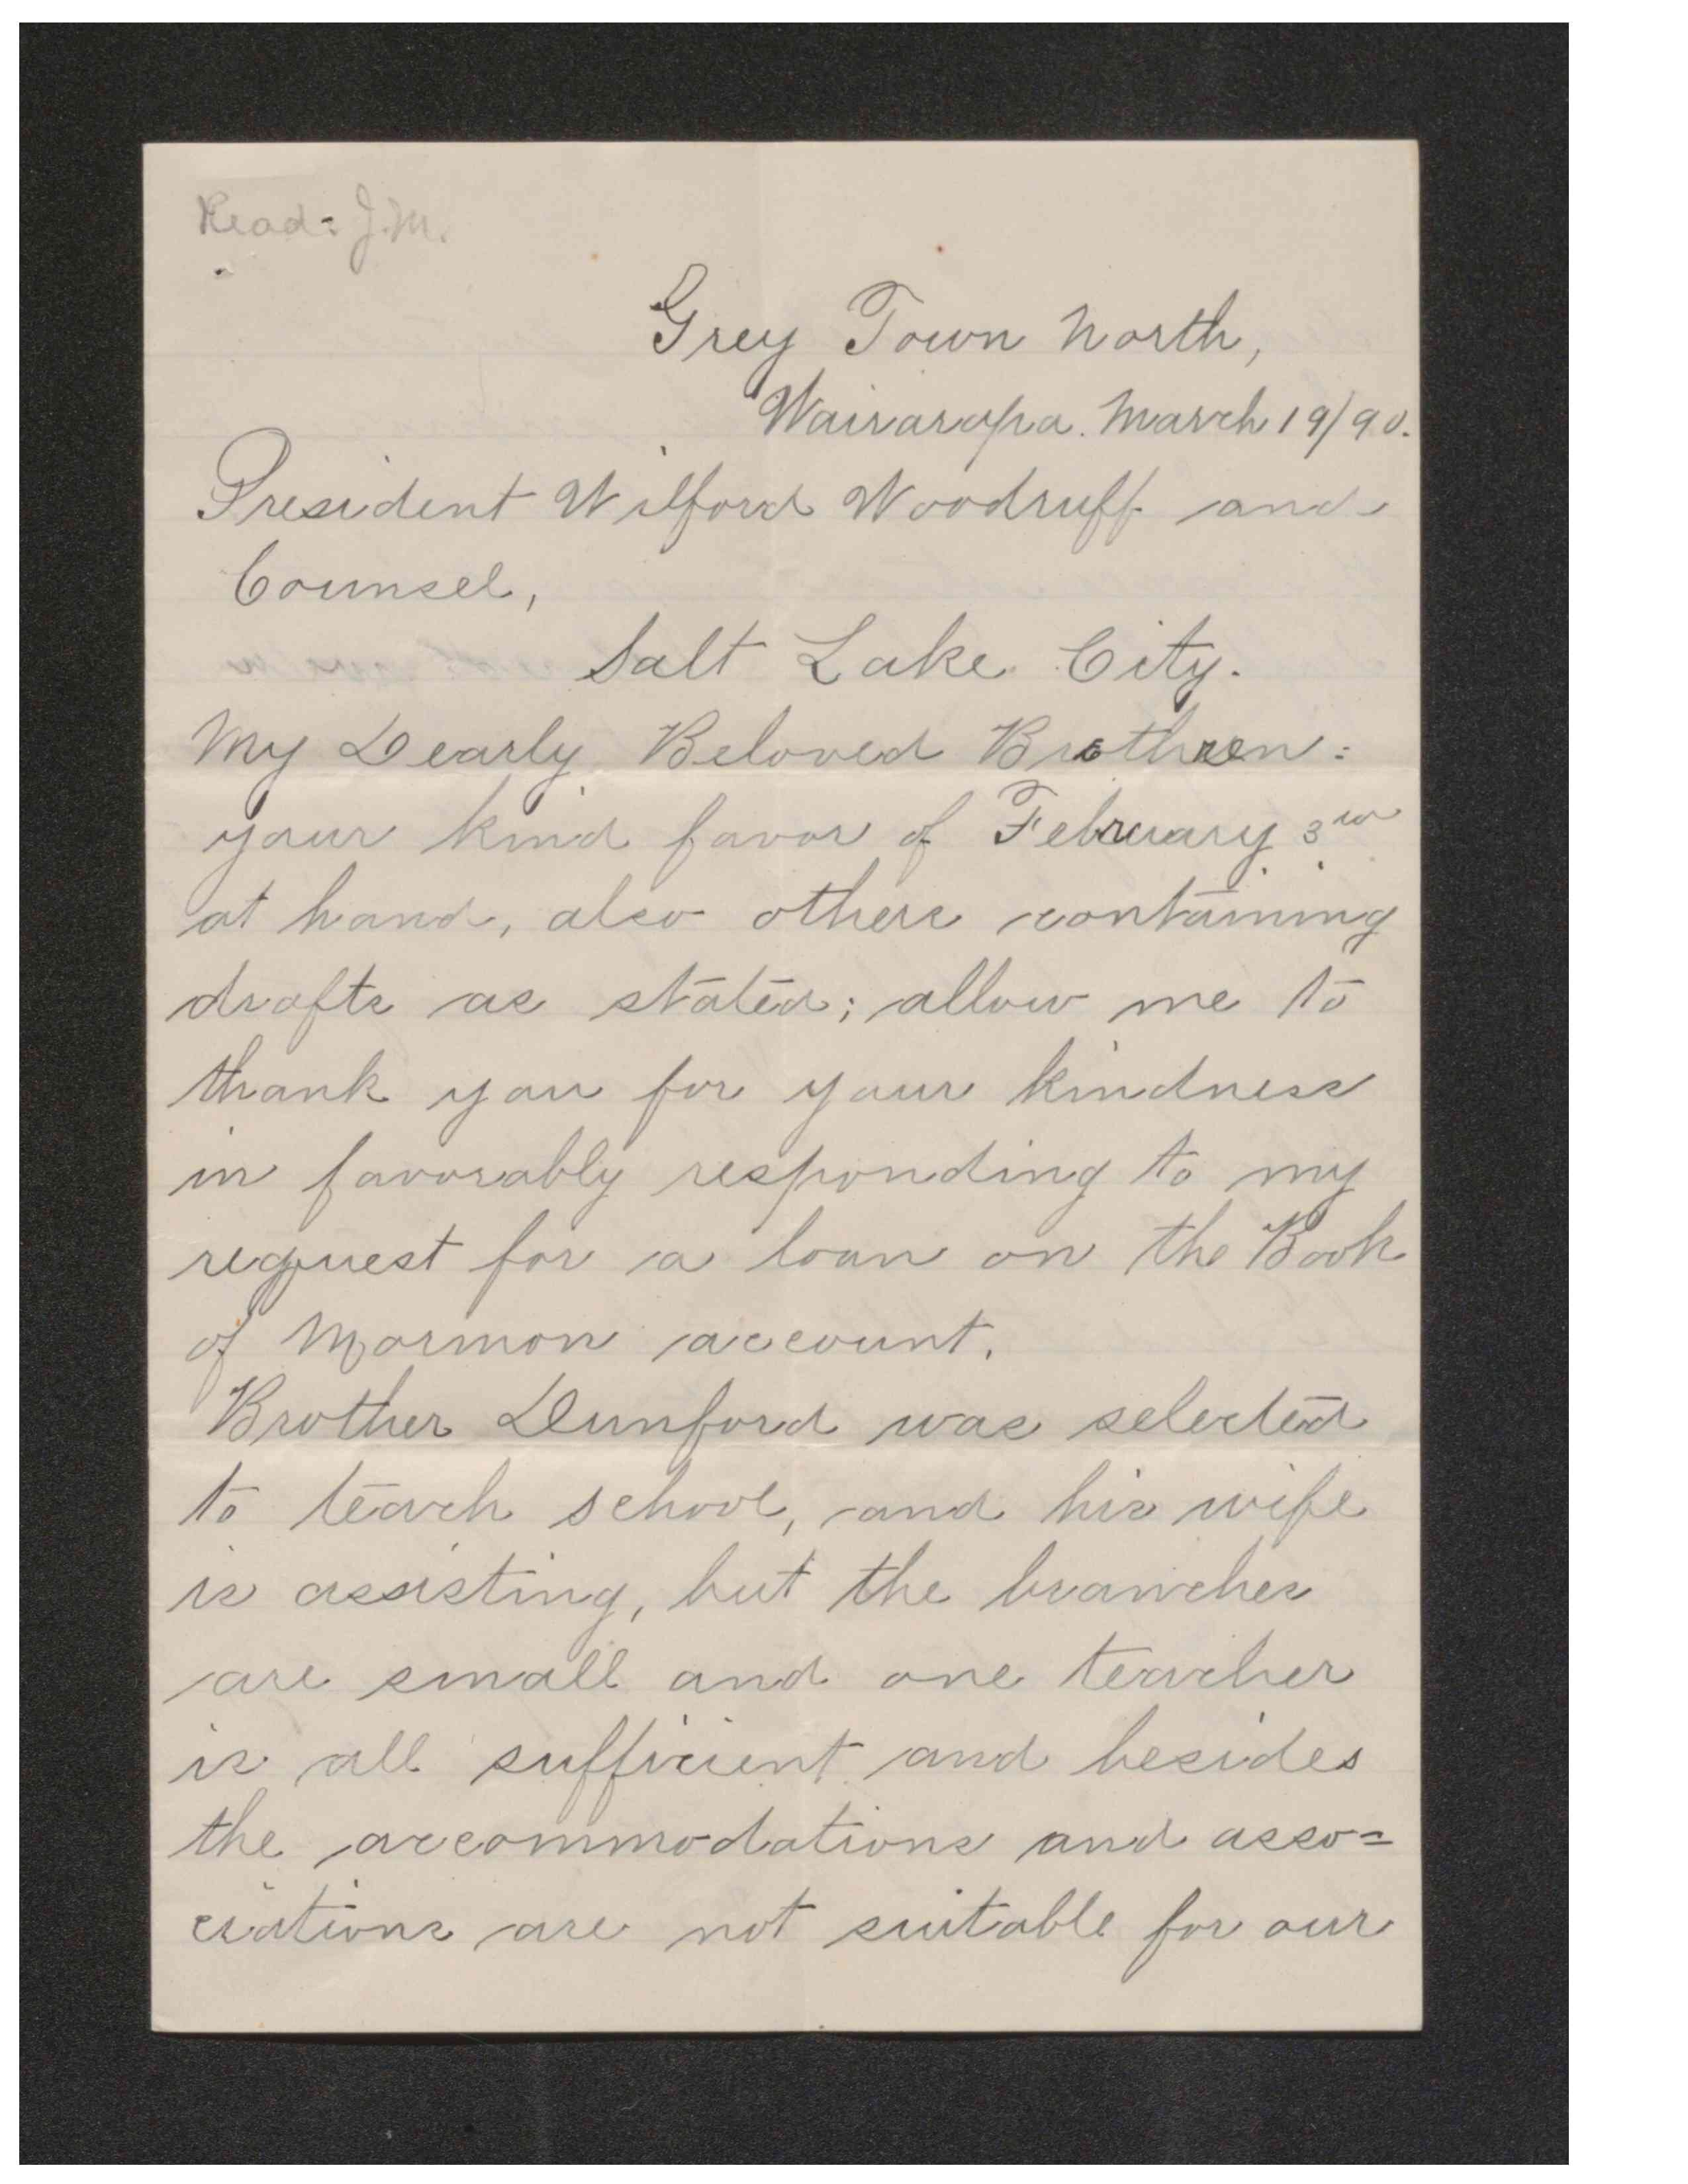 Read: J.M.
Grey Town North,
Wairarapa. March 19/90.
President Wilford Woodruff and
Counsel,
Salt Lake City.
My Dearly Beloved Brethren:
your kind favor of February 3rd
at hand, also others containing
drafts as stated; allow me to
thank you for your kindness
in favorably responding to my
request for a loan on the Book
of Mormon account.
Brother Dunford was selected
to teach school, and his wife
is assisting, but the branches
are small and one teacher
is all sufficient and besides
the accommodations and asso=
ciations are not suitable for our